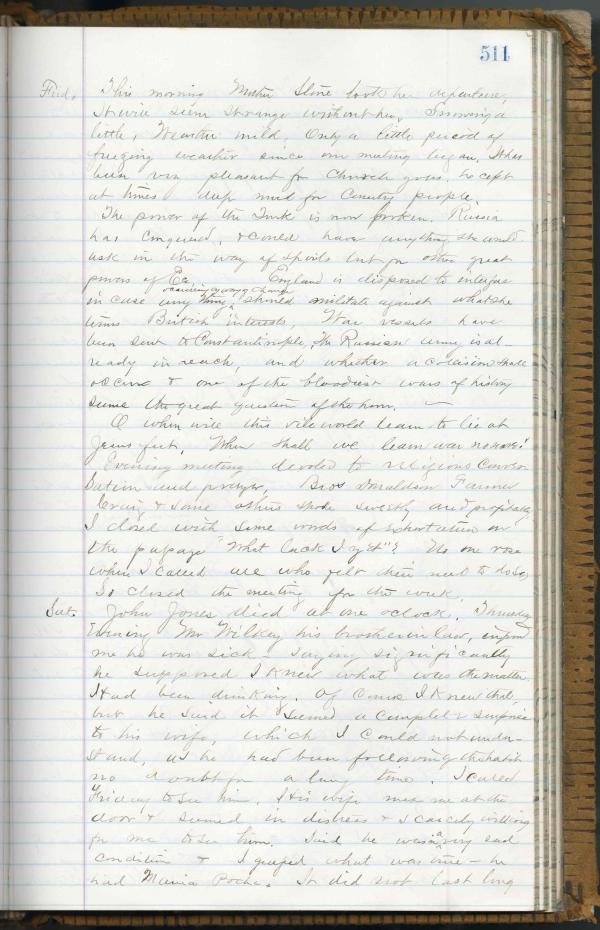 511
Frid. This morning Mother Stone took her departure,
It will seem strange without her. Snowing a
little, Weather mild, Only a little period of
freezing weather since our meeting began. It has
been very pleasant for Church goers, except
at times deep mud for Country people.
The power of the Turk is now broken. Russia
has Conquered, & could have anything she would
ask in the way of spoils but for other great
powers of England is disposed to interfere
occurring or any change
in case any thing, should militate against what she
terms British interests, War vessels have
been sent to Constantinople, the Russian army is al-
ready in reach, and whether a collision shall
occur & one of the bloodiest wars of history
seems the great question of the hour.
O when will this vile world learn to lie at
Jesus feet, When shall we learn war no more!
Evening meeting devoted to religious Conver
sation and prayer, Bros Donaldson Farmer
Craig & some others spoke sweetly and profitably
I closed with some words of exhortation on
the passage "What lack I yet"? No one rose
when I called all who felt their need to do so,
So closed the meeting for the week.
Sat. John Jones died at one oclock. Thursday
Evening Mr Wilkey his brother in law, informd
me he was sick - saying significantly
he supposed I knew what was the matter,
Had been drinking. Of Course I knew that,
but he said it seemed a complete surprise
to his wife, which I could not under-
stand, as he had been following the habit
no doubt for a long time. I called
Friday to see him. His wife met me at the
door & seemed in distress & scarcely willing
for me to see him. Said he was in a very sad
condition & I guessed what was true - he
had Mania Poche. It did not last long